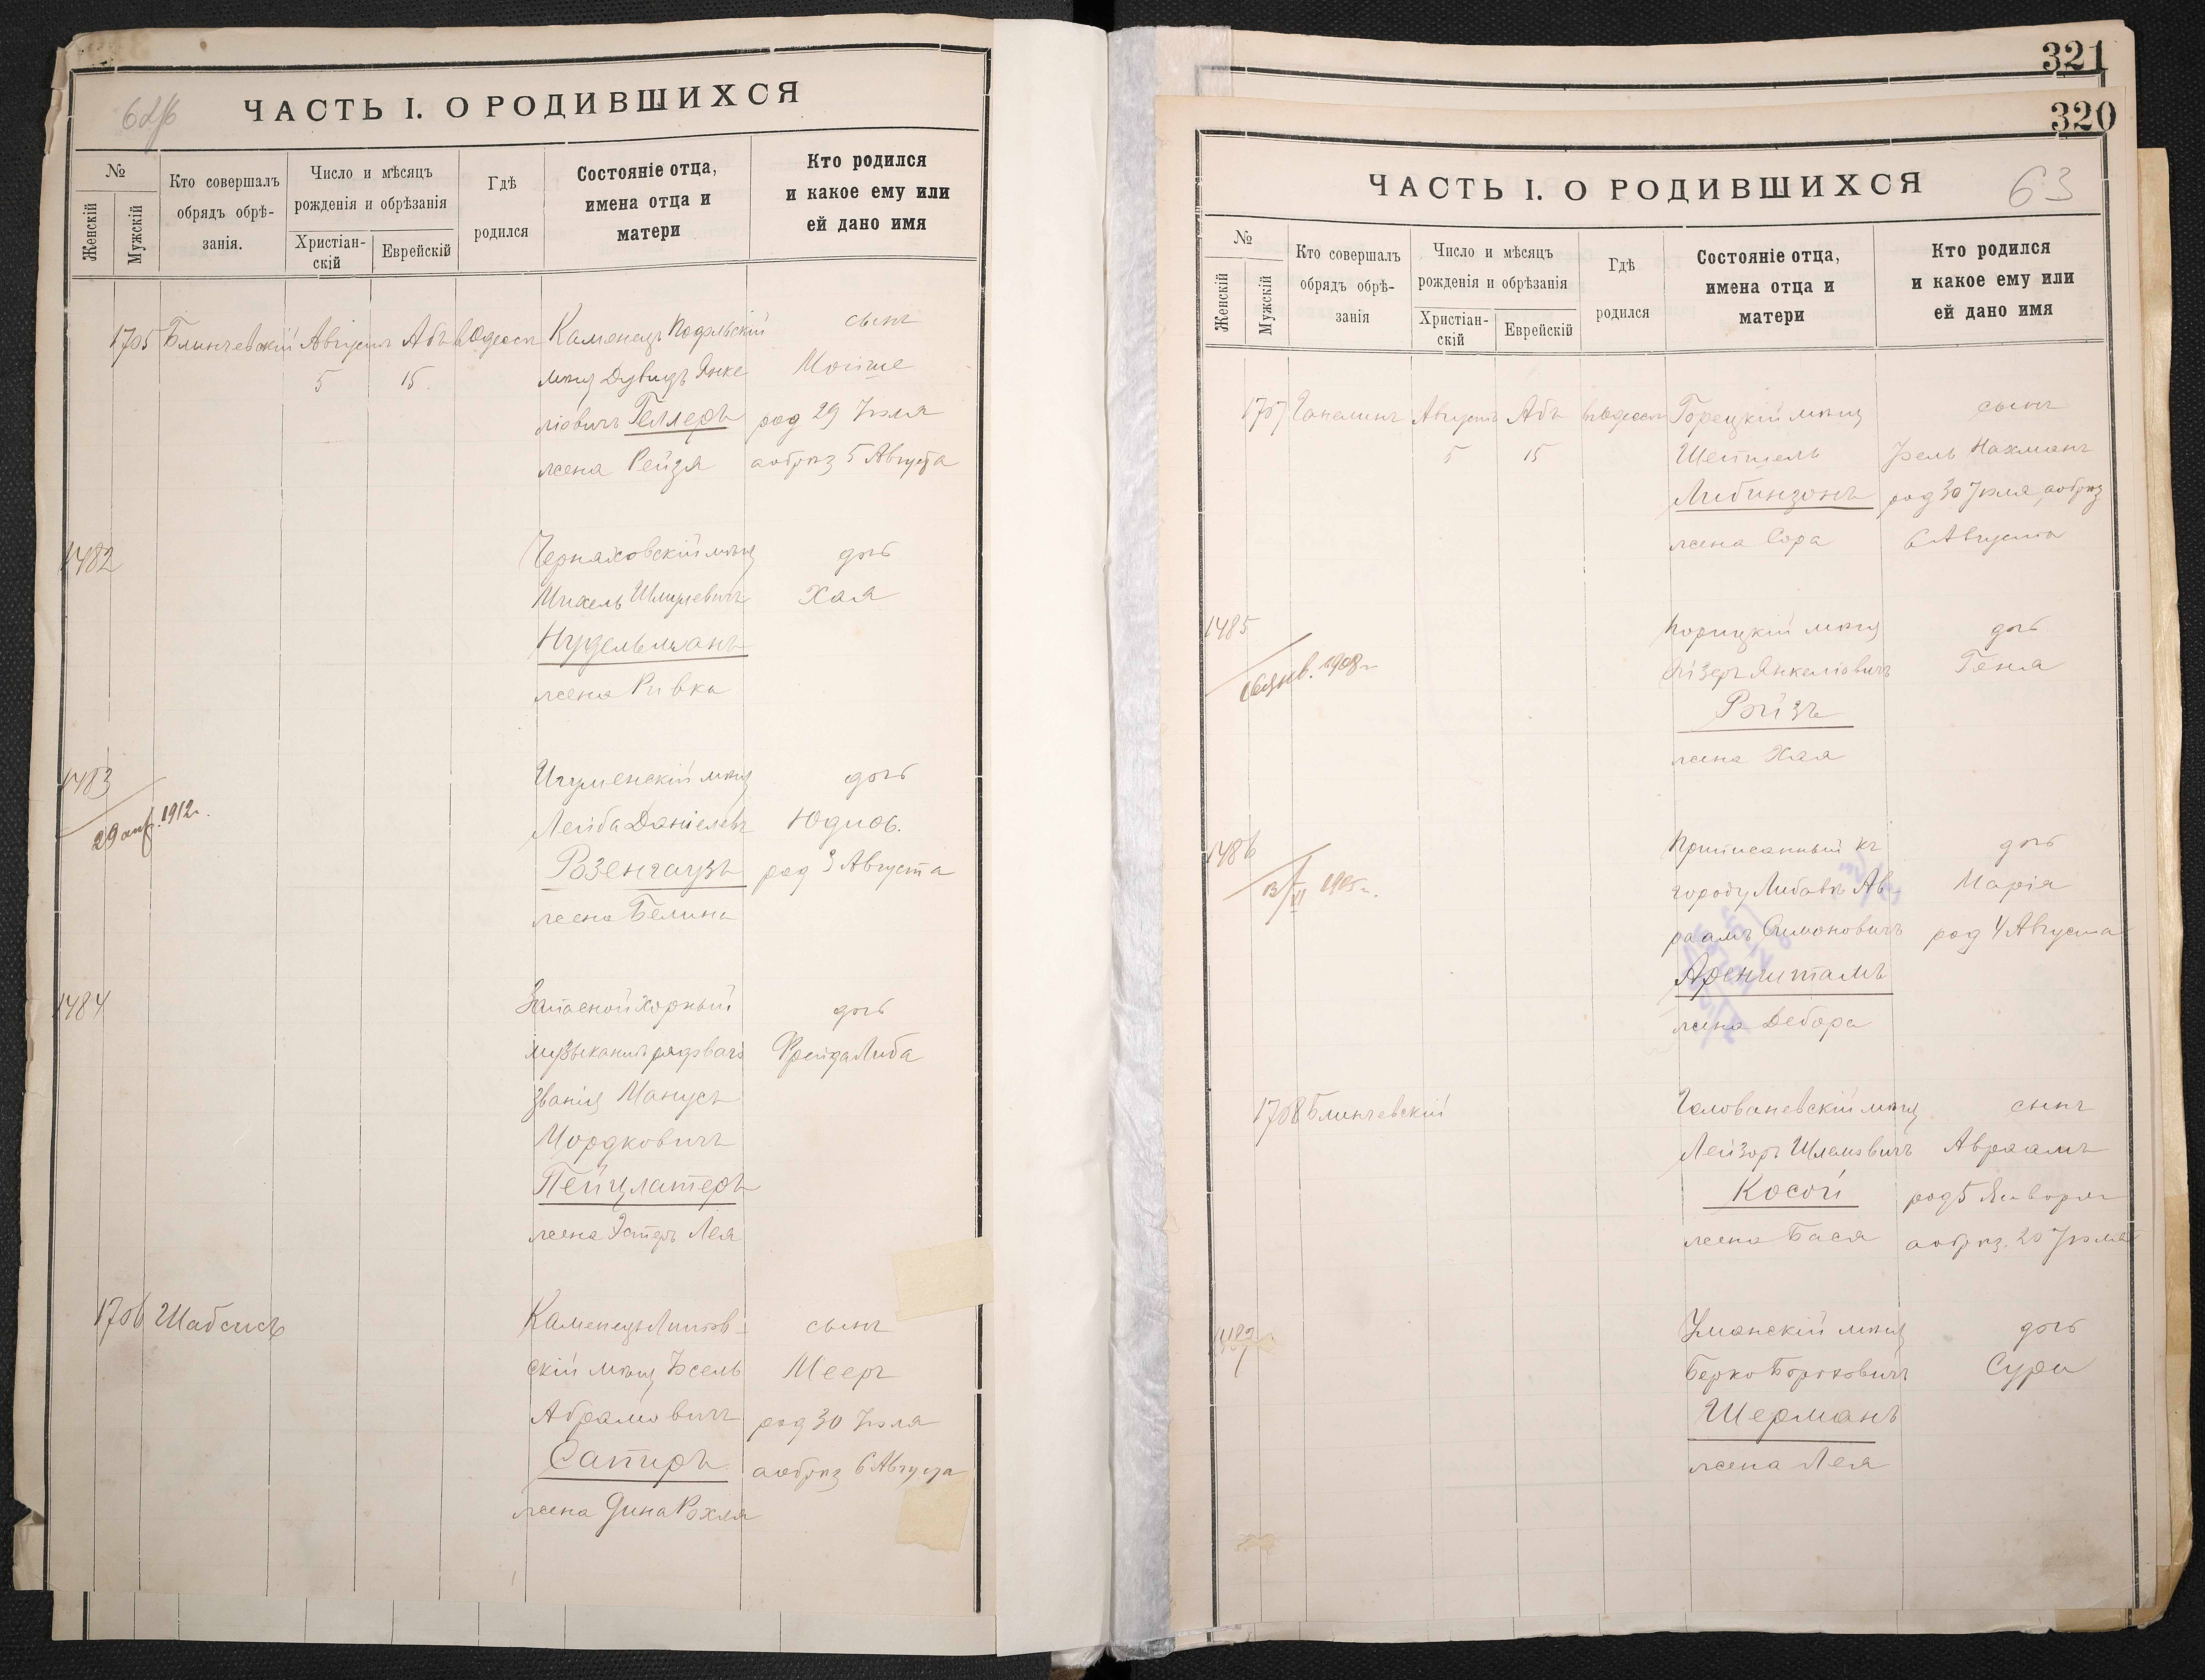 62/б
ЧАСТЬ I. О РОДИВШИХСЯ
№
Женскій
Мужскій
Кто совершалъ
обрядъ обрѣ-
занія.
Число и мѣсяцъ
рожденія и обрѣзанія
Христіан-
скій
Еврейскій
Гдѣ
родился
Состояніе отца,
имена отца и
матери
Кто родился
и какое ему или
ей дано имя
1705 Блинчевскій Августъ Абъ въ Одессѣ Каменецъ Подольскій сынъ
5 15 мѣщ Дувидъ Янке Мойше
ліовичъ Геллеръ род 29 Іюля
жена Рейзя а обрѣз 5 Августа
1482 Черняховскій мѣщ дочь
Михель Шмулевичъ Хая
Нудельманъ
жена Ривка
1483 Игуменскій мѣщ дочь
29 апр. 1912г. Лейба Даніелевъ Юдиѳь.
Розенгаузъ род 3 Августа
жена Бейлина
1484 Запасной хорный дочь
музыкантъ рядового Фрейда Либа
званія Манусъ
Мордковичъ
Пейцлатеръ
жена Эстеръ Лея
1706 Шабсисъ Каменецъ Литов- сынъ
скій мѣщ Іосель Мееръ
Абрамовичъ род 30 Іюля
Сапиръ а обрѣз 6 Августа
жена Дина Рохля
321
320
ЧАСТЬ I. О РОДИВШИХСЯ
63
№
Женскій
Мужскій
Кто совершалъ
обрядъ обрѣ-
занія
Число и мѣсяцъ
рожденія и обрѣзанія
Христіан-
скій
Еврейскій
Гдѣ
родился
Состояніе отца,
имена отца и
матери
Кто родился
и какое ему или
ей дано имя
1707 Ганелинъ Августъ Абъ въ Одессѣ Горецкій мѣщ сынъ
5 15 Шепшель Іоель Нахманъ
Либинзонъ род 30 Іюля, а обрѣз
жена Сора 6 Августа
1485 Корицкій мѣщ дочь
1908г. Янкеліовичъ Геня
Ройзъ
жена Хая
1486 Приписанный къ дочь
13/VI 1915г. городу Либавѣ Ав- Марія
раамъ Симоновичъ род 4 Августа
Аренштамъ
жена Дебора
1708 Блинчевскій Головановскій мѣщ сынъ
Лейзоръ Шлемовичъ Авраамъ
Косой род 5 Января
жена Бася а обрѣз. 20 Іюля
Уманскій мѣщ дочь
Берко Бороховичъ Сура
Шерманъ
жена Лея